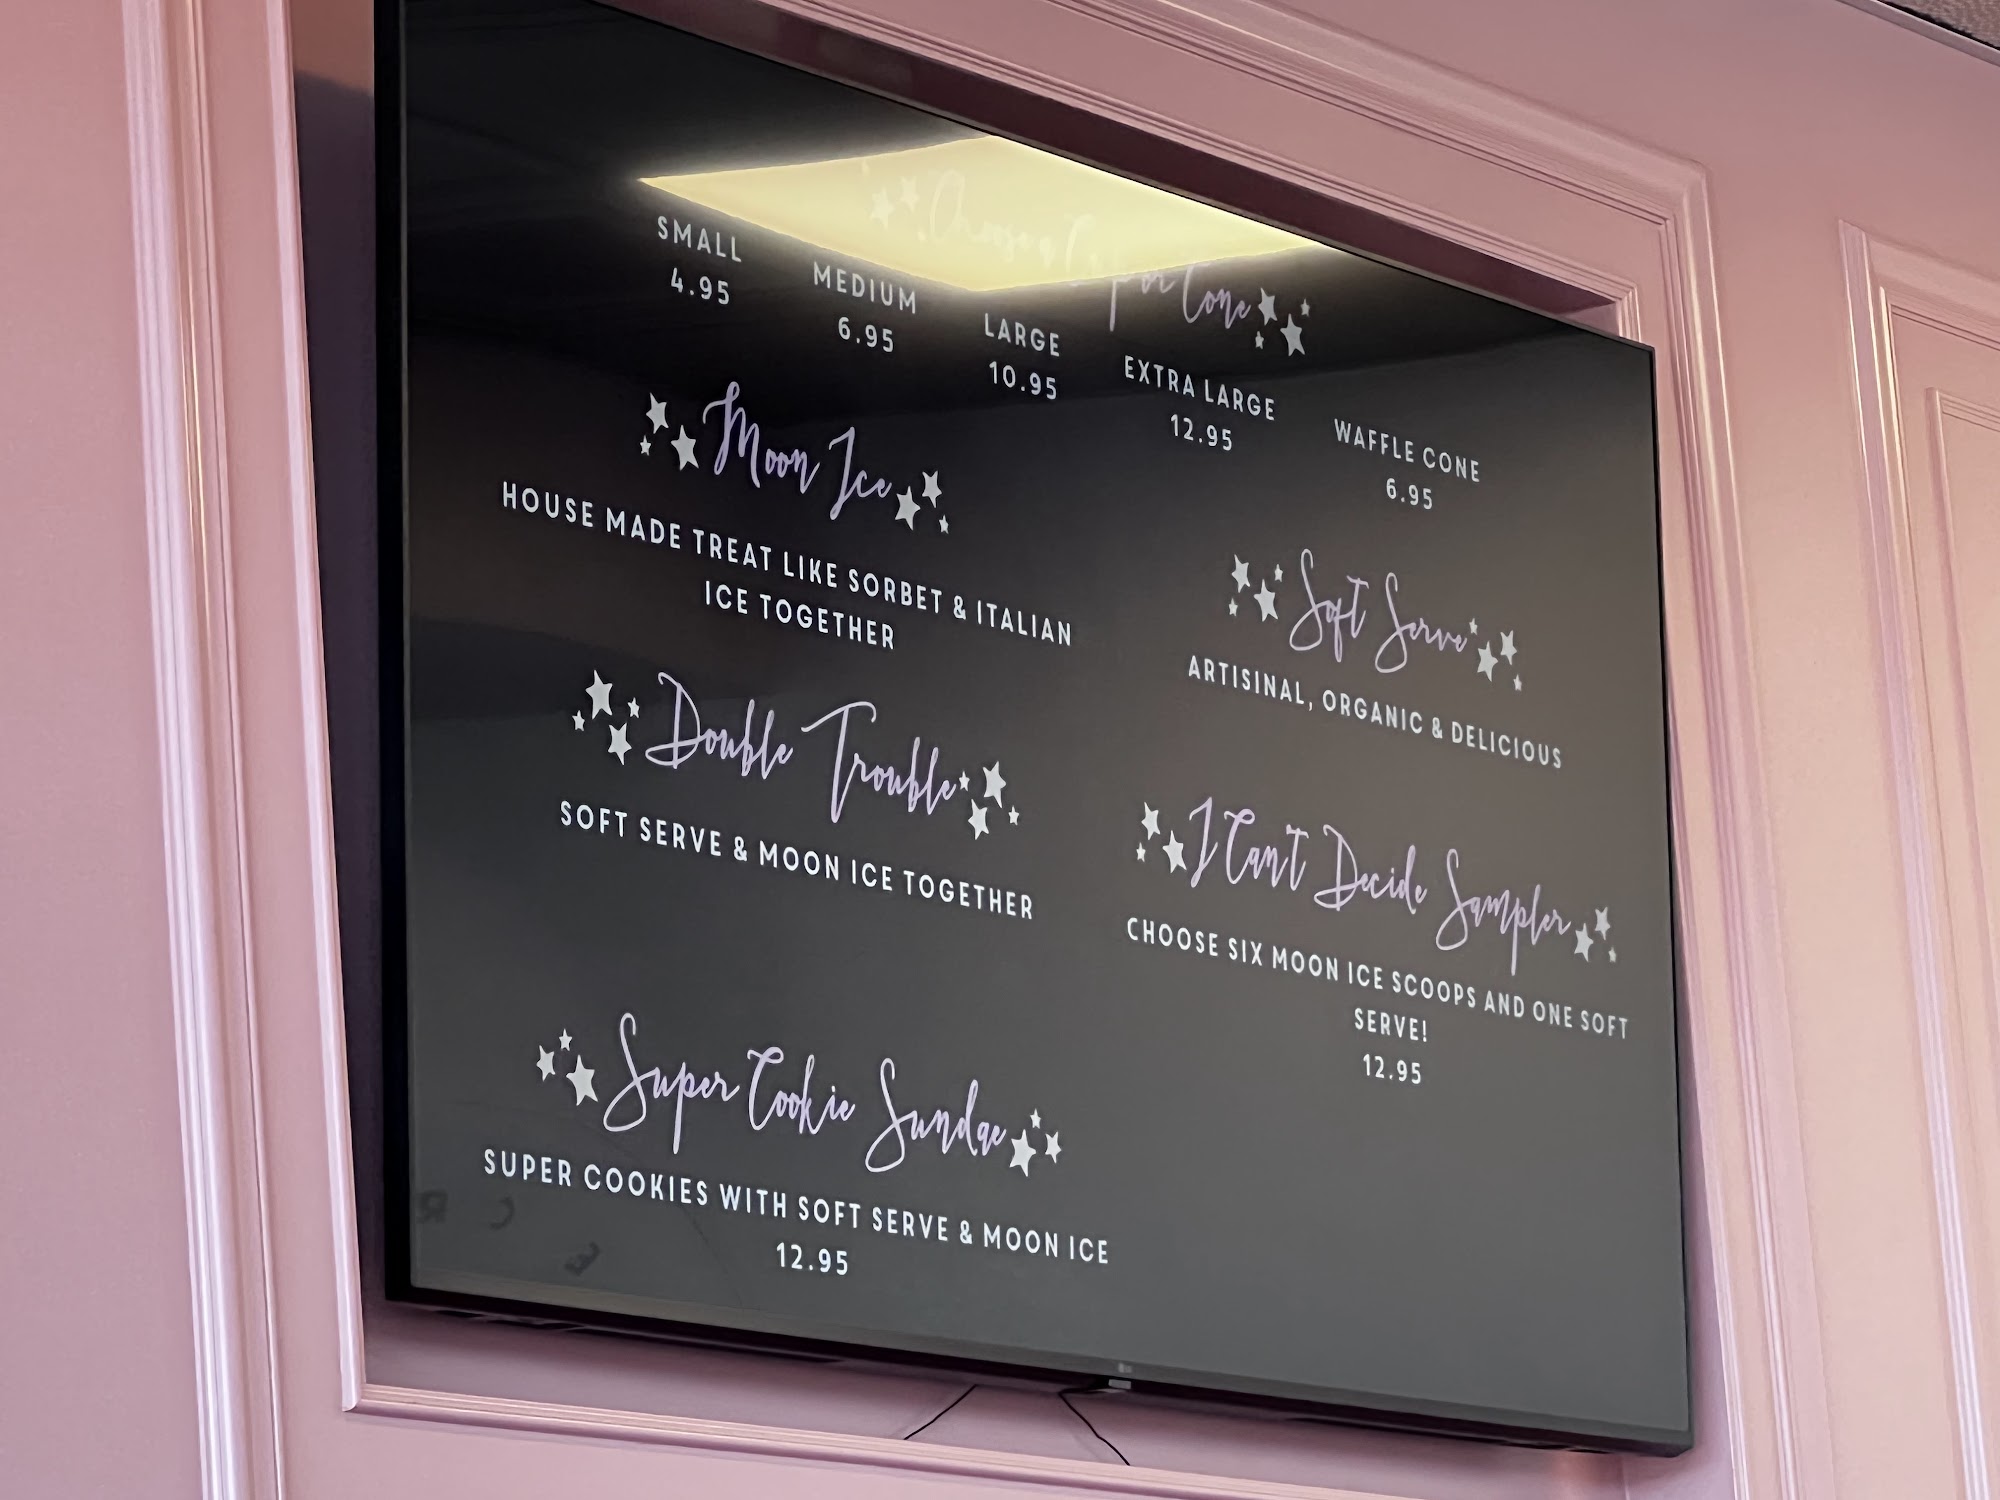 Choose a Cup or Cone
SMALL
4.95
MEDIUM
6.95
LARGE
10.95
EXTRA LARGE
12.95
WAFFLE CONE
6.95
Moon Ice
HOUSE MADE TREAT LIKE SORBET & ITALIAN
ICE TOGETHER
Soft Serve
ARTISINAL, ORGANIC & DELICIOUS
Double Trouble
SOFT SERVE & MOON ICE TOGETHER
I Can't Decide Sampler
CHOOSE SIX MOON ICE SCOOPS AND ONE SOFT
SERVE!
12.95
Super Cookie Sundae
SUPER COOKIES WITH SOFT SERVE & MOON ICE
12.95
LG